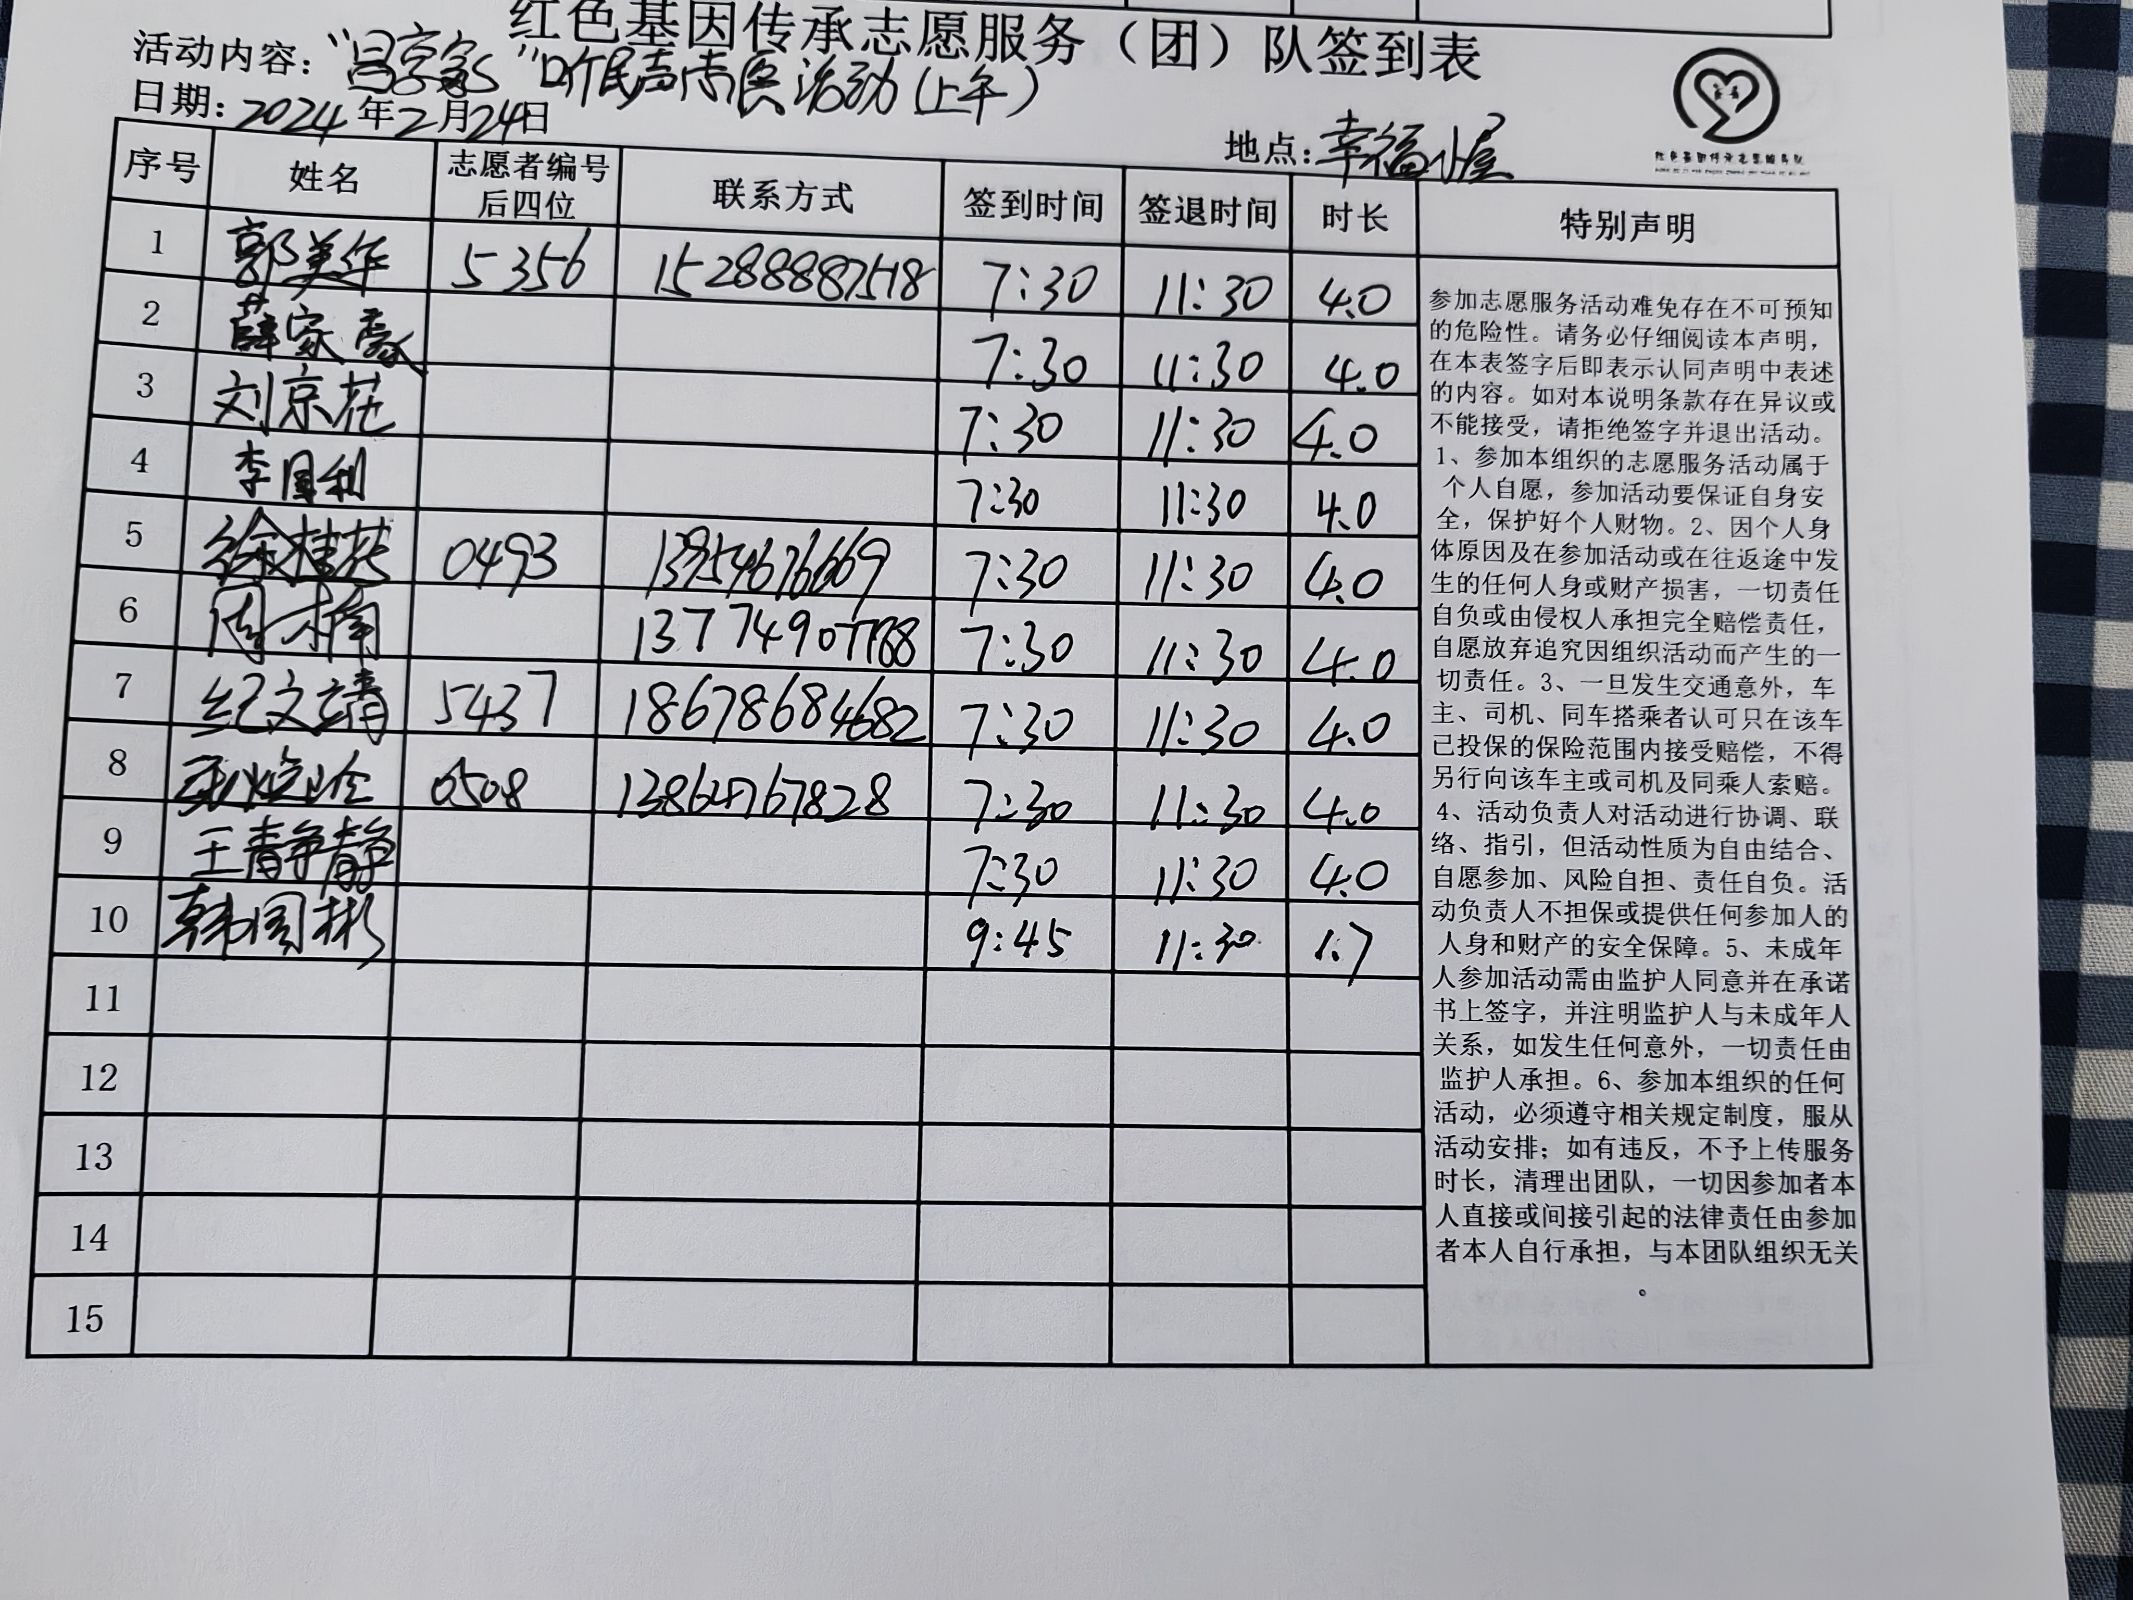 红色基因传承志愿服务（团）队签到表
活动内容：“吕家” 听民声 活动（上午）
日期：2024年2月24日
地点：幸福小屋
序号 姓名 志愿者编号后四位 联系方式 签到时间 签退时间 时长 特别声明
1 郭美华 5356 15288887518 7:30 11:30 4.0
2 薛家 7:30 11:30 4.0
3 刘京花 7:30 11:30 4.0
4 李国利 7:30 11:30 4.0
5 徐桂花 0493 13954676669 7:30 11:30 4.0
6 周 7:30 11:30 4.0
7 纪文靖 5437 18678684682 7:30 11:30 4.0
8 0508 7:30 11:30 4.0
9 王静静 7:30 11:30 4.0
10 韩国彬 9:45 11:30 1.7
11
12
13
14
15
参加志愿服务活动难免存在不可预知
的危险性。请务必仔细阅读本声明，
在本表签字后即表示认同声明中表述
的内容。如对本说明条款存在异议或
不能接受，请拒绝签字并退出活动。
1、参加本组织的志愿服务活动属于
个人自愿，参加活动要保证自身安
全，保护好个人财物。2、因个人身
体原因及在参加活动或在往返途中发
生的任何人身或财产损害，一切责任
自负或由侵权人承担完全赔偿责任，
自愿放弃追究因组织活动而产生的一
切责任。3、一旦发生交通意外，车
主、司机、同车搭乘者认可只在该车
已投保的保险范围内接受赔偿，不得
另行向该车主或司机及同乘人索赔。
4、活动负责人对活动进行协调、联
络、指引，但活动性质为自由结合、
自愿参加、风险自担、责任自负。活
动负责人不担保或提供任何参加人的
人身和财产的安全保障。5、未成年
人参加活动需由监护人同意并在承诺
书上签字，并注明监护人与未成年人
关系，如发生任何意外，一切责任由
监护人承担。6、参加本组织的任何
活动，必须遵守相关规定制度，服从
活动安排；如有违反，不予上传服务
时长，清理出团队，一切因参加者本
人直接或间接引起的法律责任由参加
者本人自行承担，与本团队组织无关
。